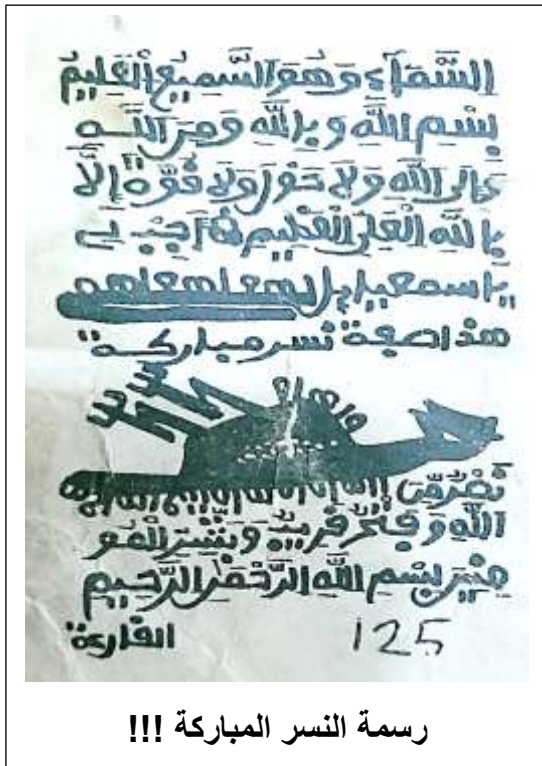 السَّمَاءِ وَهُوَ السَّمِيعُ الْعَلِيمُ
بِسْمِ اللَّهِ وَبِاللَّهِ وَمِنَ اللَّهِ
عَلَى اللَّهِ وَلَا حَوْلَ وَلَا قُوَّةَ إِلَّا
بِاللَّهِ الْعَلِيِّ الْعَظِيمِ أجب لي
هذا صفة نسر مباركة
نَصْرٌ مِّنَ
اللَّهِ وَفَتْحٌ قَرِيبٌ وَبَشِّرِ الْمُو
مِنِينَ بِسْمِ اللَّهِ الرَّحْمَنِ الرَّحِيمِ
القارعة 125
رسمة النسر المباركة !!!